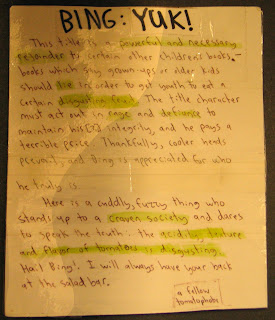 BING: YUK!
This title is a powerful and necessary
rejoinder to certain other children's books –
books which say grown-ups or older kids
should lie in order to get youth to eat a
certain disgusting fruit. The title character
must act out in rage and defiance to
maintain his integrity, and he pays a
terrible price. Thankfully, cooler heads
prevail, and Bing is appreciated for who
he truly is.
Here is a cuddly, fuzzy thing who
stands up to a craven society and dares
to speak the truth: the acidity, texture
and flavor of tomatoes is disgusting.
Hail Bing! I will always have your back
at the salad bar.
a fellow
tomatophobe